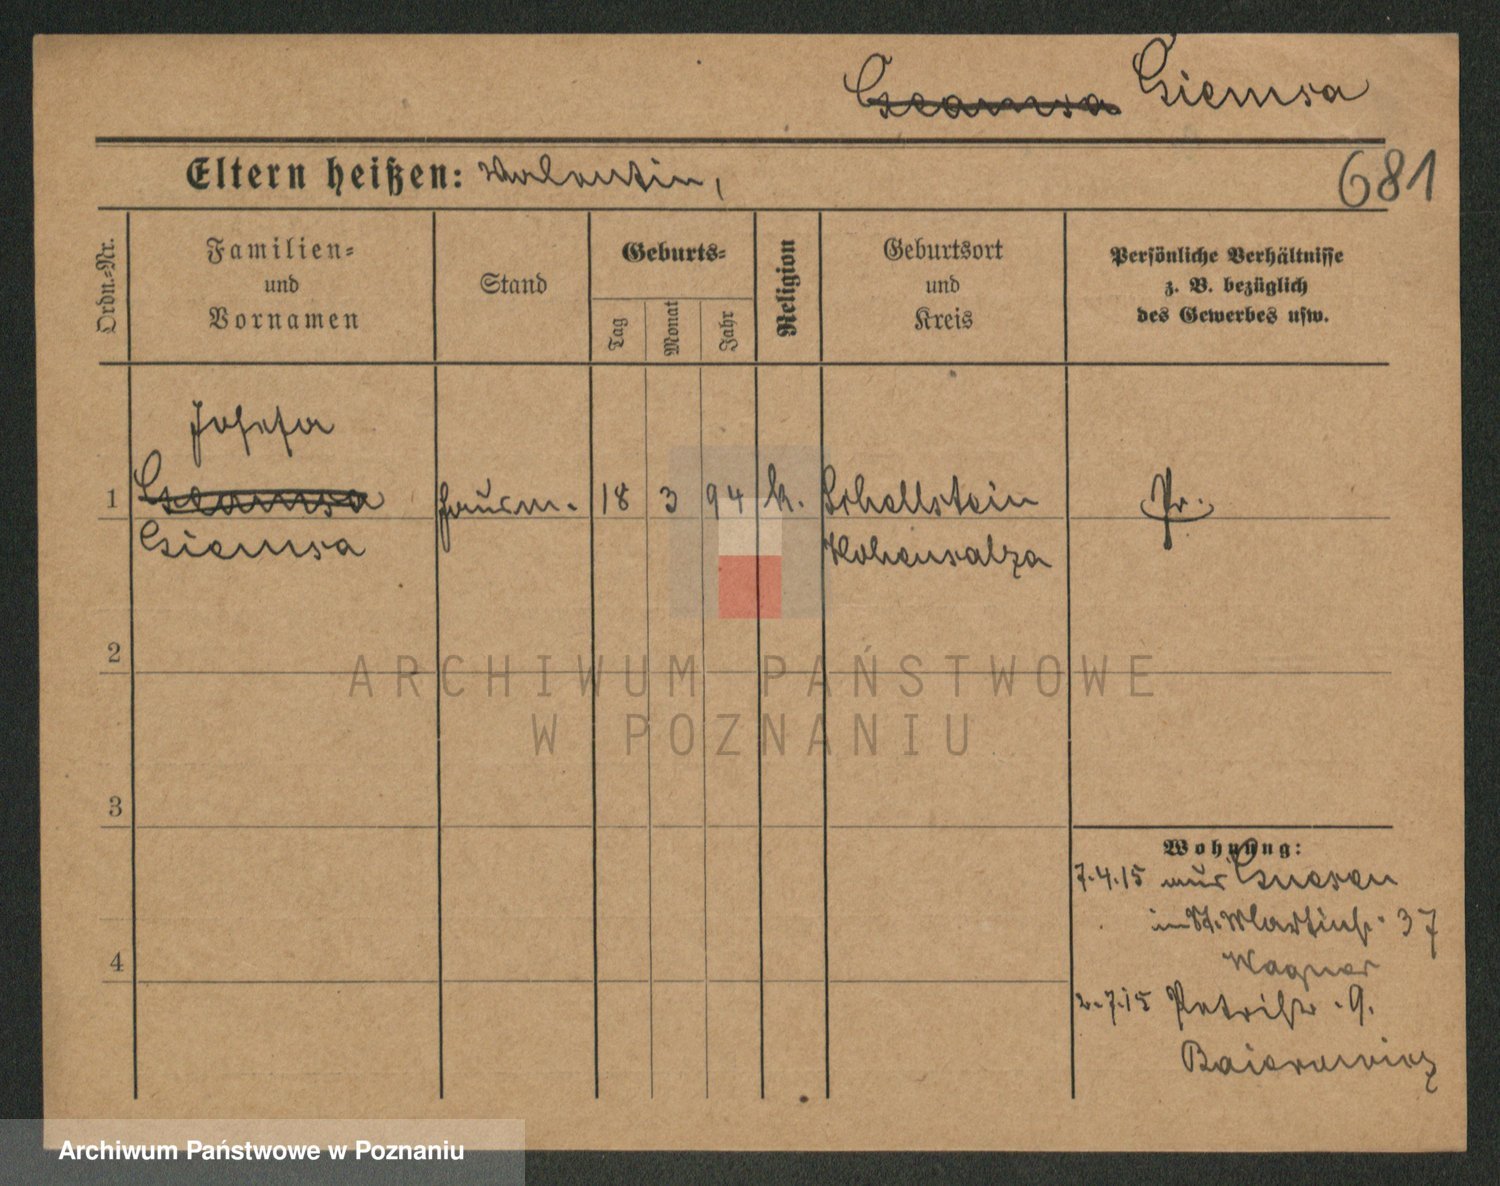 Czamsa Giemsa
Eltern heißen: Valentin,
681
Ordn.=Nr.
Familien=
und
Vornamen
Stand
Geburts=
Tag
Monat
Jahr
Religion
Geburtsort
und
Kreis
Persönliche Verhältnisse
z. B. bezüglich
des Gewerbes usw.
Josefa
1 18 3 94 k. Schellstein Pr.
Giemsa Hohensalza
2
ARCHIWUM PAŃSTWOWE
W POZNANIU
3
Wohnung:
7.4.15 aus Gnesen
in St. Martinstr. 37
4
Wagner
2.7.15 Petristr. 9.
Archiwum Państwowe w Poznaniu